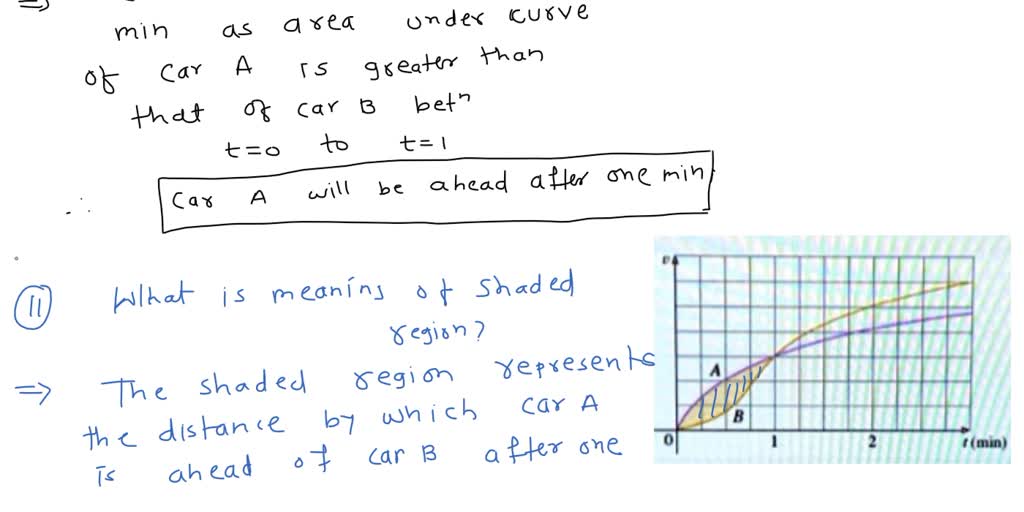 ⇒
min as area under curve
of car A is greater than
that of car B betⁿ
t=0 to t=1
∴ Car A will be ahead after one min
11 What is meanins of shaded
region?
⇒ The shaded region represents
the distance by which car A
is ahead of car B after one
v
A
B
0 1 2 t (min)